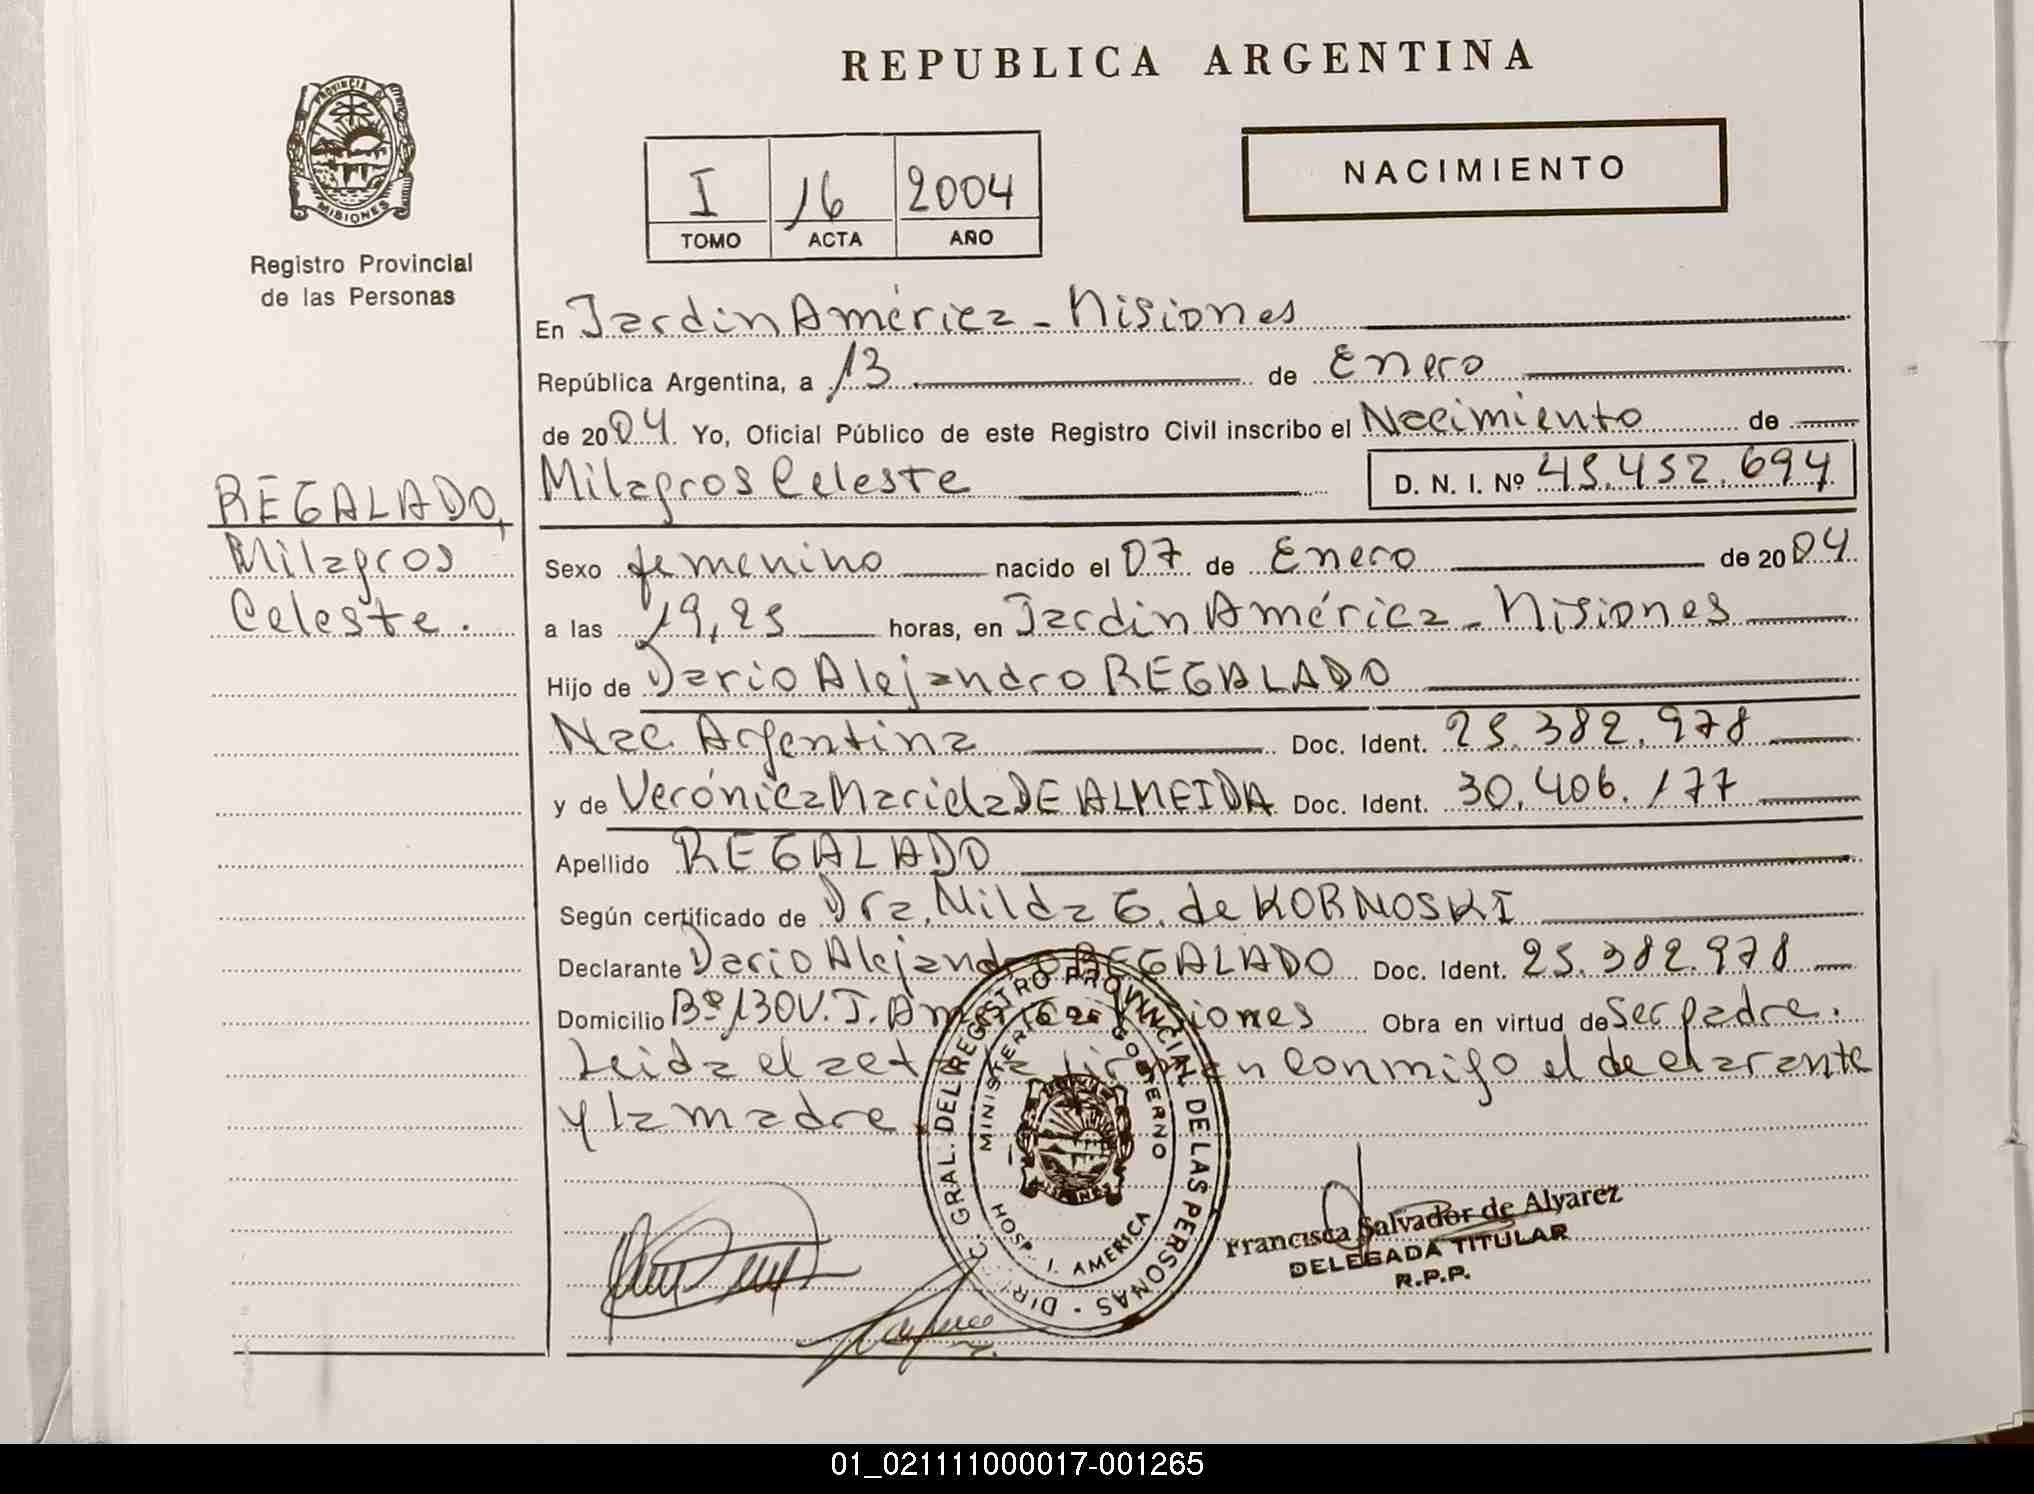 REPUBLICA ARGENTINA
PROVINCIA DE
MISIONES
Registro Provincial
de las Personas
NACIMIENTO
I 16 2004
TOMO ACTA AÑO
En Jardin América - Misiones
República Argentina, a 13 de Enero
de 2004. Yo, Oficial Público de este Registro Civil inscribo el Nacimiento de
Milagros Celeste D. N. I. Nº 45.452.694
REGALADO,
Milagros
Celeste.
Sexo femenino nacido el 07 de Enero de 2004
a las 19,25 horas, en Jardin América - Misiones
Hijo de Dario Alejandro REGALADO
Nac. Argentina Doc. Ident. 25.382.978
y de Verónica Mariela DE ALMEIDA Doc. Ident. 30.406.177
Apellido REGALADO
Según certificado de Dra. Milda G. de KORNOSKI
Declarante Dario Alejandro REGALADO Doc. Ident. 25.382.978
Domicilio Bº 130V. J. América Misiones Obra en virtud de Ser padre.
Leida el acta la firman conmigo el declarante
y la madre
DIREC. GRAL. DEL REGISTRO PROVINCIAL DE LAS PERSONAS
MINISTERIO DE GOBIERNO
MISIONES
HOSP. J. AMERICA
Francisca Salvador de Alyarez
DELEGADA TITULAR
R.P.P.
01_021111000017-001265